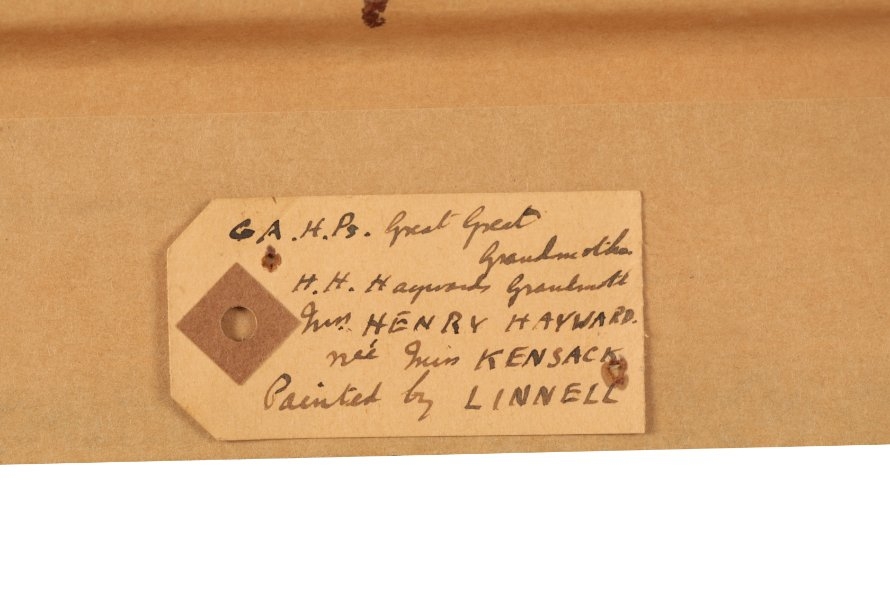 GA.H.Ps. Great Great
Grandmother
H.H. Haywards Grandmoth
Mrs HENRY HAYWARD.
née Miss KENSACK
Painted by LINNELL